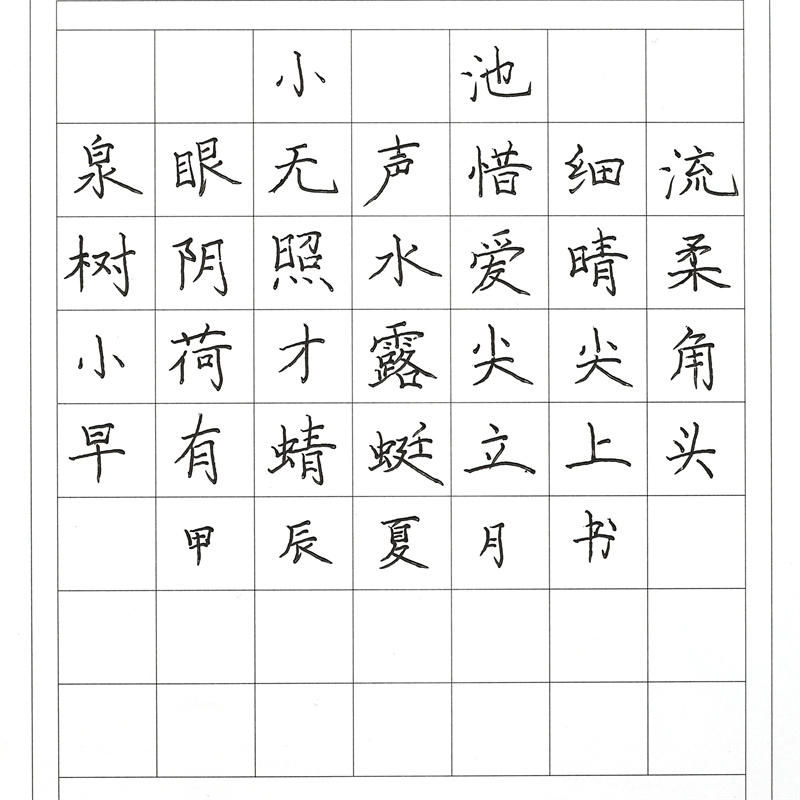 小池
泉眼无声惜细流
树阴照水爱晴柔
小荷才露尖尖角
早有蜻蜓立上头
甲辰夏月书